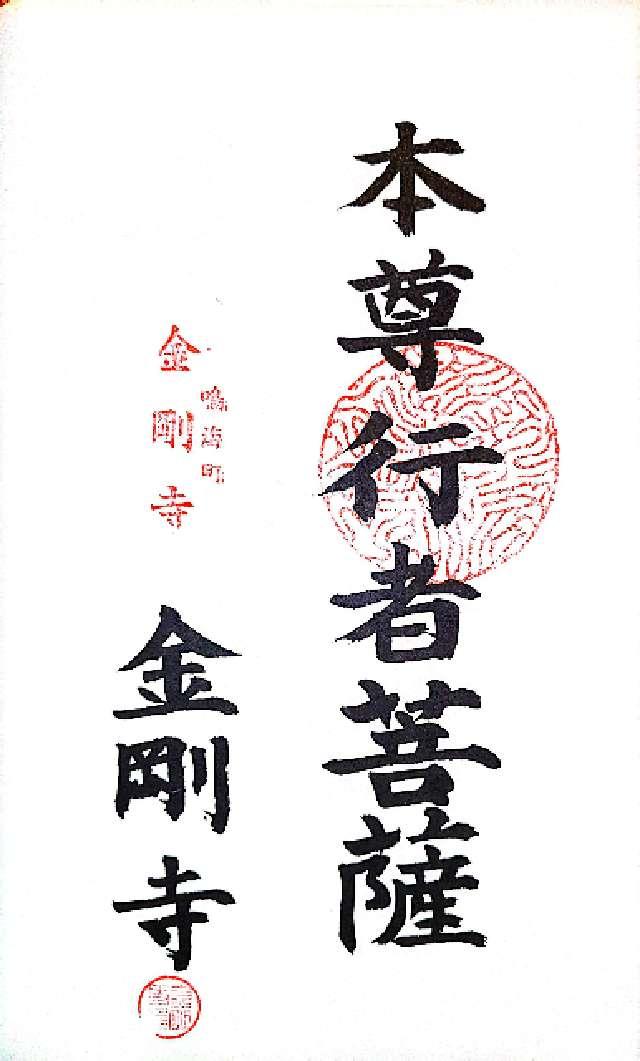 本尊行者菩薩
鳴海町
金剛寺
金剛寺